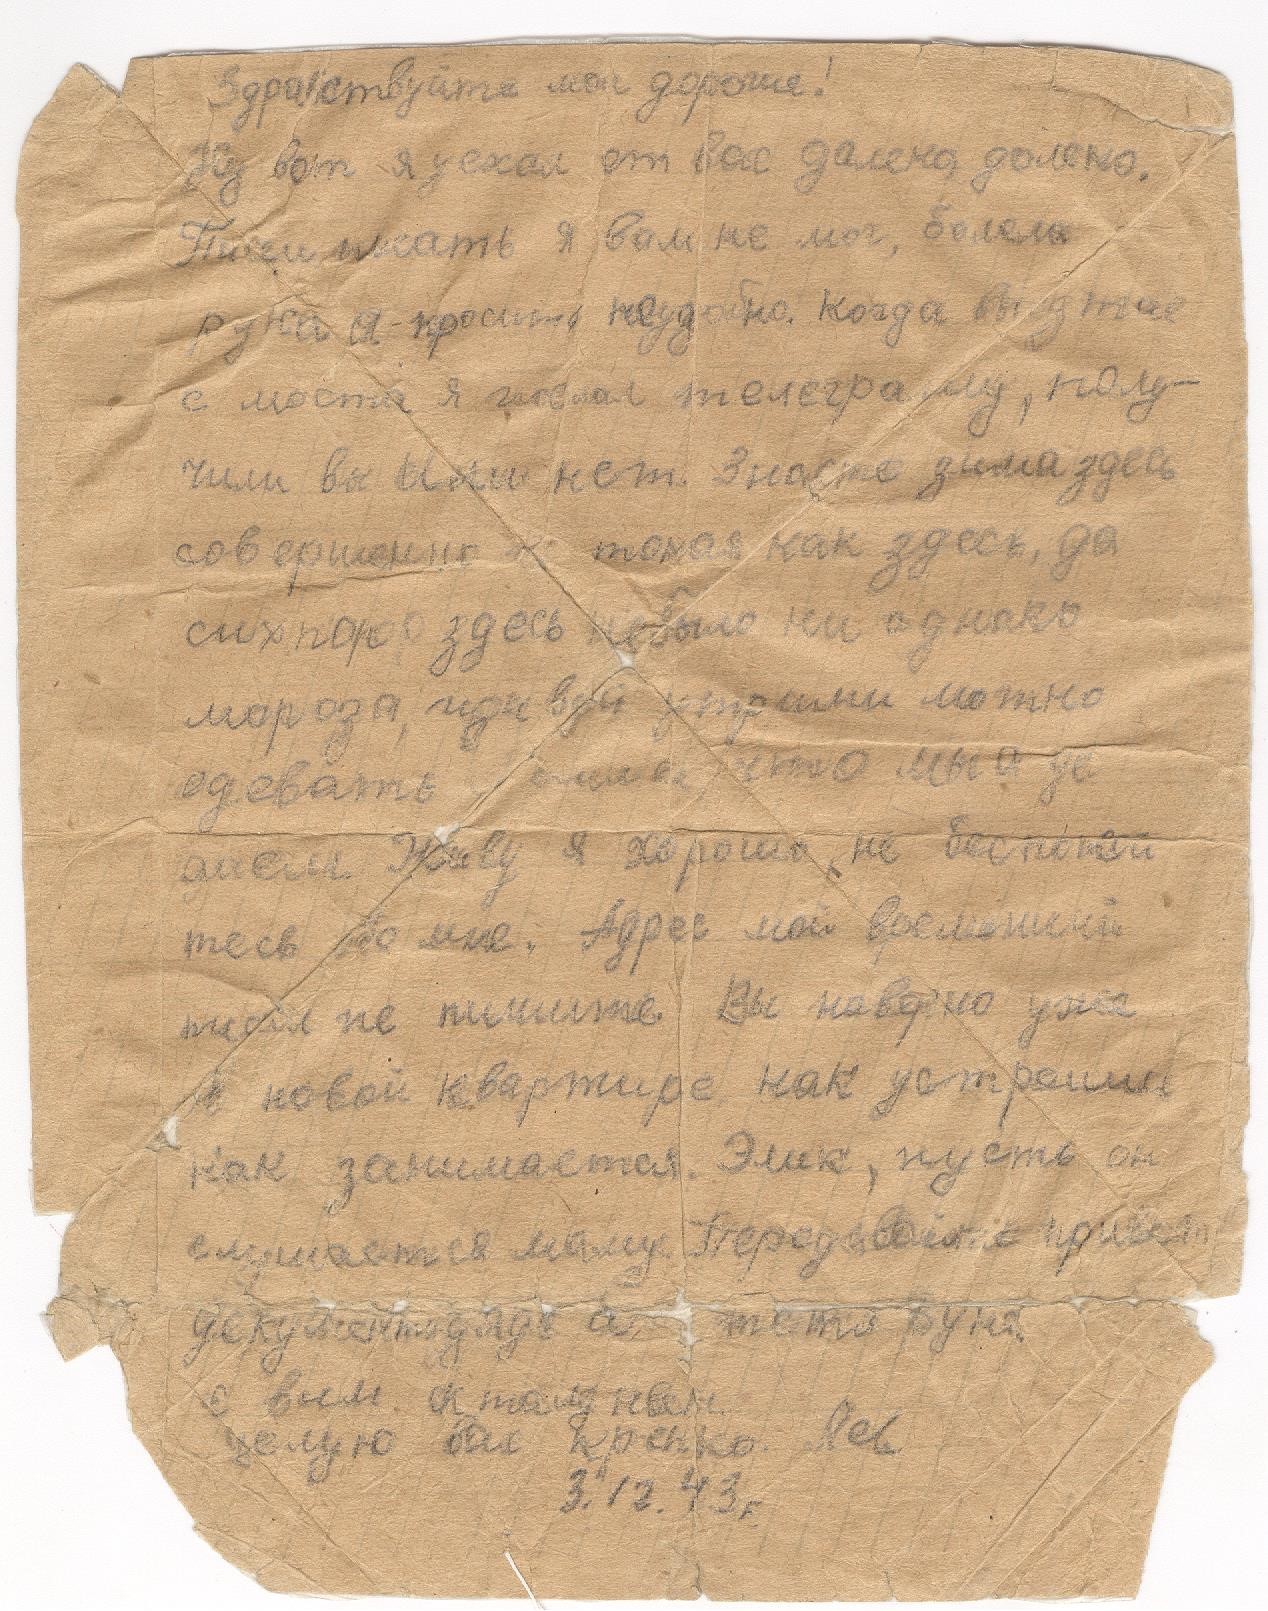 Здравствуйте мои дорогие!
Ну вот я уехал от вас далеко, далеко.
писать я вам не мог, болела
рука а просить неудобно. Когда
с места я послал телеграмму, полу-
чили вы или нет. Знаете зима здесь
совершенно не такая как здесь, да
сих пор здесь небыло ни одного
мороза,
одевать что мы и де
лаем. Живу я хорошо, не беспокой
тесь обо мне. Адрес мой временный
писем не пишите. Вы наверно уже
в новой квартире как устроились
как занимается. Элик, пусть он
слушается маму. Передавайте привет
дяде тетя
с
целую вас крепко. Лев
3.12.43г